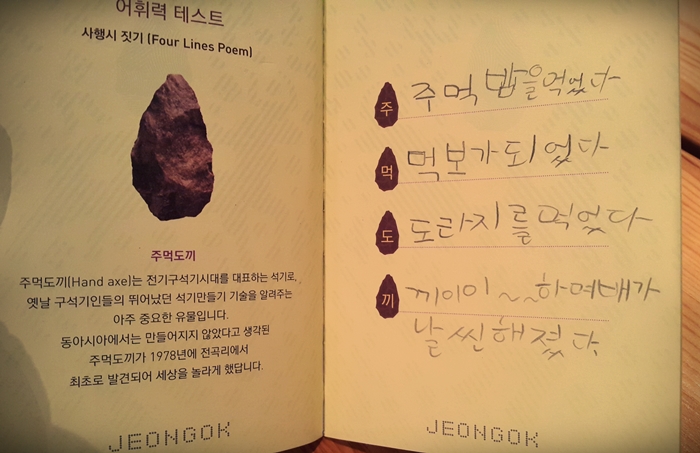 어휘력 테스트
사행시 짓기 (Four Lines Poem)
주먹도끼
주먹도끼(Hand axe)는 전기구석기시대를 대표하는 석기로,
옛날 구석기인들의 뛰어났던 석기만들기 기술을 알려주는
아주 중요한 유물입니다.
동아시아에서는 만들어지지 않았다고 생각된
주먹도끼가 1978년에 전곡리에서
최초로 발견되어 세상을 놀라게 했답니다.
JEONGOK
주 주먹밥을먹었다
먹 먹보가되었다
도 도라지를먹었다
끼 끼이이~~하며배가
날씬해졌다.
JEONGOK